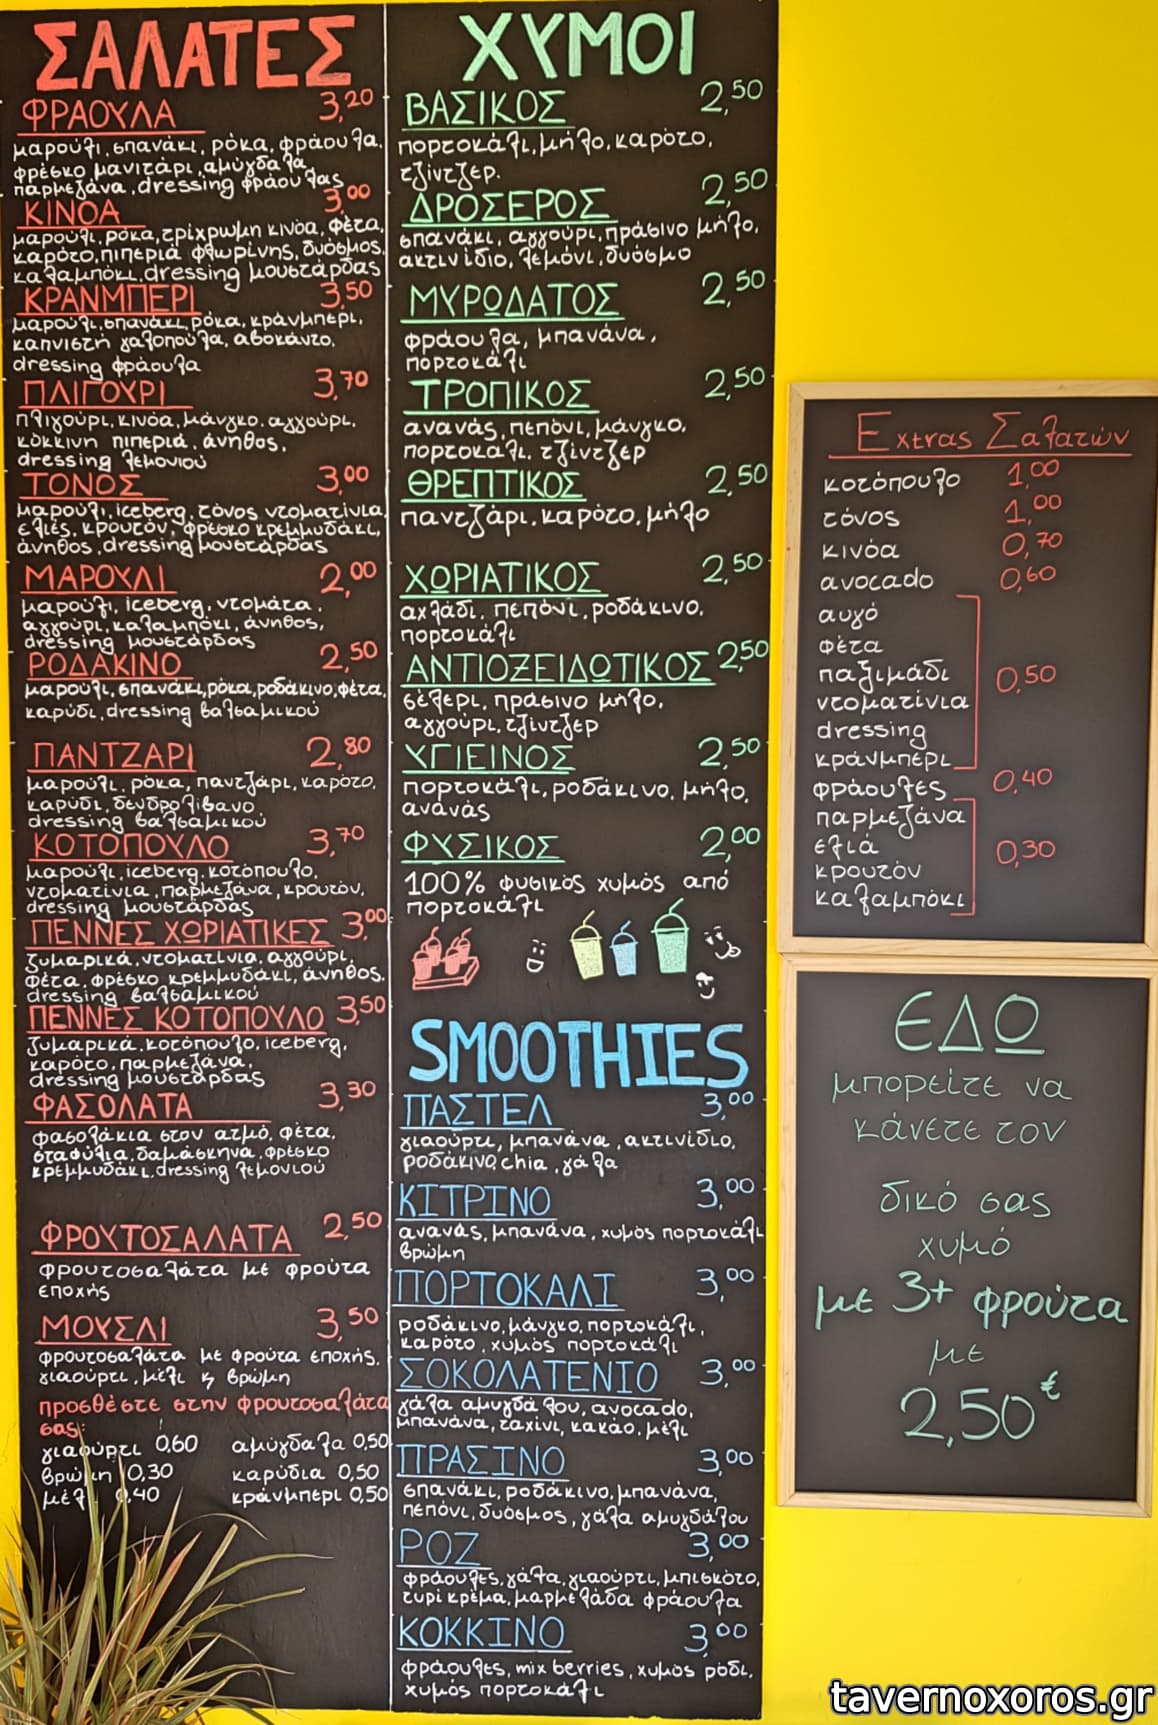 ΣΑΛΑΤΕΣ
ΦΡΑΟΥΛΑ 3,20
μαρούλι, σπανάκι, ρόκα, φράουλα,
φρέσκο μανιτάρι, αμύγδαλα,
παρμεζάνα, dressing φράουλας
ΚΙΝΟΑ 3,00
μαρούλι, ρόκα, τρίχρωμη κινόα, φέτα,
καρότο, πιπεριά φλωρίνης, δυόσμος,
καλαμπόκι, dressing μουστάρδας
ΚΡΑΝΜΠΕΡΙ 3,50
μαρούλι, σπανάκι, ρόκα, κράνμπερι,
καπνιστή γαλοπούλα, αβοκάντο,
dressing φράουλα
ΠΛΙΓΟΥΡΙ 3,70
πλιγούρι, κινόα, μάνγκο, αγγούρι,
κόκκινη πιπεριά, άνηθος,
dressing λεμονιού
ΤΟΝΟΣ 3,00
μαρούλι, iceberg, τόνος ντοματίνια,
ελιές, κρουτόν, φρέσκο κρεμμυδάκι,
άνηθος, dressing μουστάρδας
ΜΑΡΟΥΛΙ 2,00
μαρούλι, iceberg, ντομάτα,
αγγούρι, καλαμπόκι, άνηθος,
dressing μουστάρδας
ΡΟΔΑΚΙΝΟ 2,50
μαρούλι, σπανάκι, ρόκα, ροδάκινο, φέτα,
καρύδι, dressing βαλσαμικού
ΠΑΝΤΖΑΡΙ 2,80
μαρούλι, ρόκα, παντζάρι, καρότο,
καρύδι, δενδρολίβανο
dressing βαλσαμικού
ΚΟΤΟΠΟΥΛΟ 3,70
μαρούλι, iceberg, κοτόπουλο,
ντοματίνια, παρμεζάνα, κρουτόν,
dressing μουστάρδας
ΠΕΝΝΕΣ ΧΩΡΙΑΤΙΚΕΣ 3,00
ζυμαρικά, ντοματίνια, αγγούρι,
φέτα, φρέσκο κρεμμυδάκι, άνηθος,
dressing βαλσαμικού
ΠΕΝΝΕΣ ΚΟΤΟΠΟΥΛΟ 3,50
ζυμαρικά, κοτόπουλο, iceberg,
καρότο, παρμεζάνα,
dressing μουστάρδας
ΦΑΣΟΛΑΤΑ 3,30
φασολάκια στον ατμό, φέτα,
σταφύλια, δαμάσκηνα, φρέσκο
κρεμμυδάκι, dressing λεμονιού
ΦΡΟΥΤΟΣΑΛΑΤΑ 2,50
φρουτοσαλάτα με φρούτα
εποχής
ΜΟΥΣΛΙ 3,50
φρουτοσαλάτα με φρούτα εποχής,
γιαούρτι, μέλι ή βρώμη
προσθέστε στην φρουτοσαλάτα
σας:
γιαούρτι 0,60 αμύγδαλα 0,50
βρώμη 0,30 καρύδια 0,50
μέλι 0,40 κράνμπερι 0,50
ΧΥΜΟΙ
ΒΑΣΙΚΟΣ 2,50
πορτοκάλι, μήλο, καρότο,
τζίντζερ.
ΔΡΟΣΕΡΟΣ 2,50
σπανάκι, αγγούρι, πράσινο μήλο,
ακτινίδιο, λεμόνι, δυόσμο
ΜΥΡΩΔΑΤΟΣ 2,50
φράουλα, μπανάνα,
πορτοκάλι
ΤΡΟΠΙΚΟΣ 2,50
ανανάς, πεπόνι, μάνγκο,
πορτοκάλι, τζίντζερ
ΘΡΕΠΤΙΚΟΣ 2,50
παντζάρι, καρότο, μήλο
ΧΩΡΙΑΤΙΚΟΣ 2,50
αχλάδι, πεπόνι, ροδάκινο,
πορτοκάλι
ΑΝΤΙΟΞΕΙΔΩΤΙΚΟΣ 2,50
σέλερι, πράσινο μήλο,
αγγούρι, τζίντζερ
ΥΓΙΕΙΝΟΣ 2,50
πορτοκάλι, ροδάκινο, μήλο,
ανανάς
ΦΥΣΙΚΟΣ 2,00
100% φυσικός χυμός από
πορτοκάλι
SMOOTHIES
ΠΑΣΤΕΛ 3,00
γιαούρτι, μπανάνα, ακτινίδιο,
ροδάκινο, chia, γάλα
ΚΙΤΡΙΝΟ 3,00
ανανάς, μπανάνα, χυμός πορτοκάλι
βρώμη
ΠΟΡΤΟΚΑΛΙ 3,00
ροδάκινο, μάνγκο, πορτοκάλι,
καρότο, χυμός πορτοκάλι
ΣΟΚΟΛΑΤΕΝΙΟ 3,00
γάλα αμυγδάλου, avocado,
μπανάνα, ταχίνι, κακάο, μέλι
ΠΡΑΣΙΝΟ 3,00
σπανάκι, ροδάκινο, μπανάνα,
πεπόνι, δυόσμος, γάλα αμυγδάλου
ΡΟΖ 3,00
φράουλες, γάλα, γιαούρτι, μπισκότο,
τυρί κρέμα, μαρμελάδα φράουλα
ΚΟΚΚΙΝΟ 3,00
φράουλες, mix berries, χυμός ρόδι,
χυμός πορτοκάλι
Extras Σαλατών
κοτόπουλο 1,00
τόνος 1,00
κινόα 0,70
avocado 0,60
αυγό
φέτα
παξιμάδι 0,50
ντοματίνια
dressing
κράνμπερι
φράουλες 0,40
παρμεζάνα
ελιά 0,30
κρουτόν
καλαμπόκι
ΕΔΩ
μπορείτε να
κάνετε τον
δικό σας
χυμό
με 3+ φρούτα
με
2,50€
tavernoxoros.gr